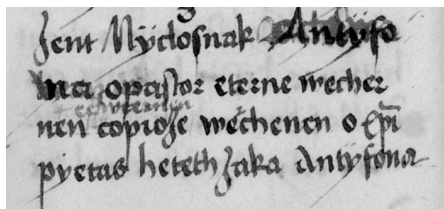 zent Nÿclosnak Antÿfo
na opastor eterne wecher
nen copiose wechenen o xpi
pyetas heteth zaka Antÿfona